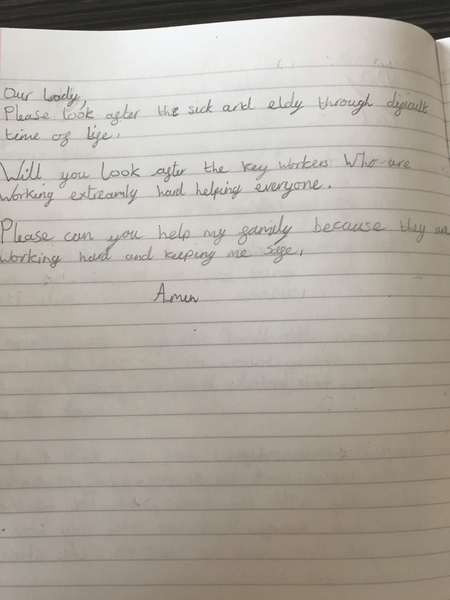 Our Lady,
Please look after the sick and eldy through dificult
time of life.
Will you look after the key workers Who are
working extreamly hard helping everyone.
Please can you help my family because they
working hard and keeping me safe.
Amen